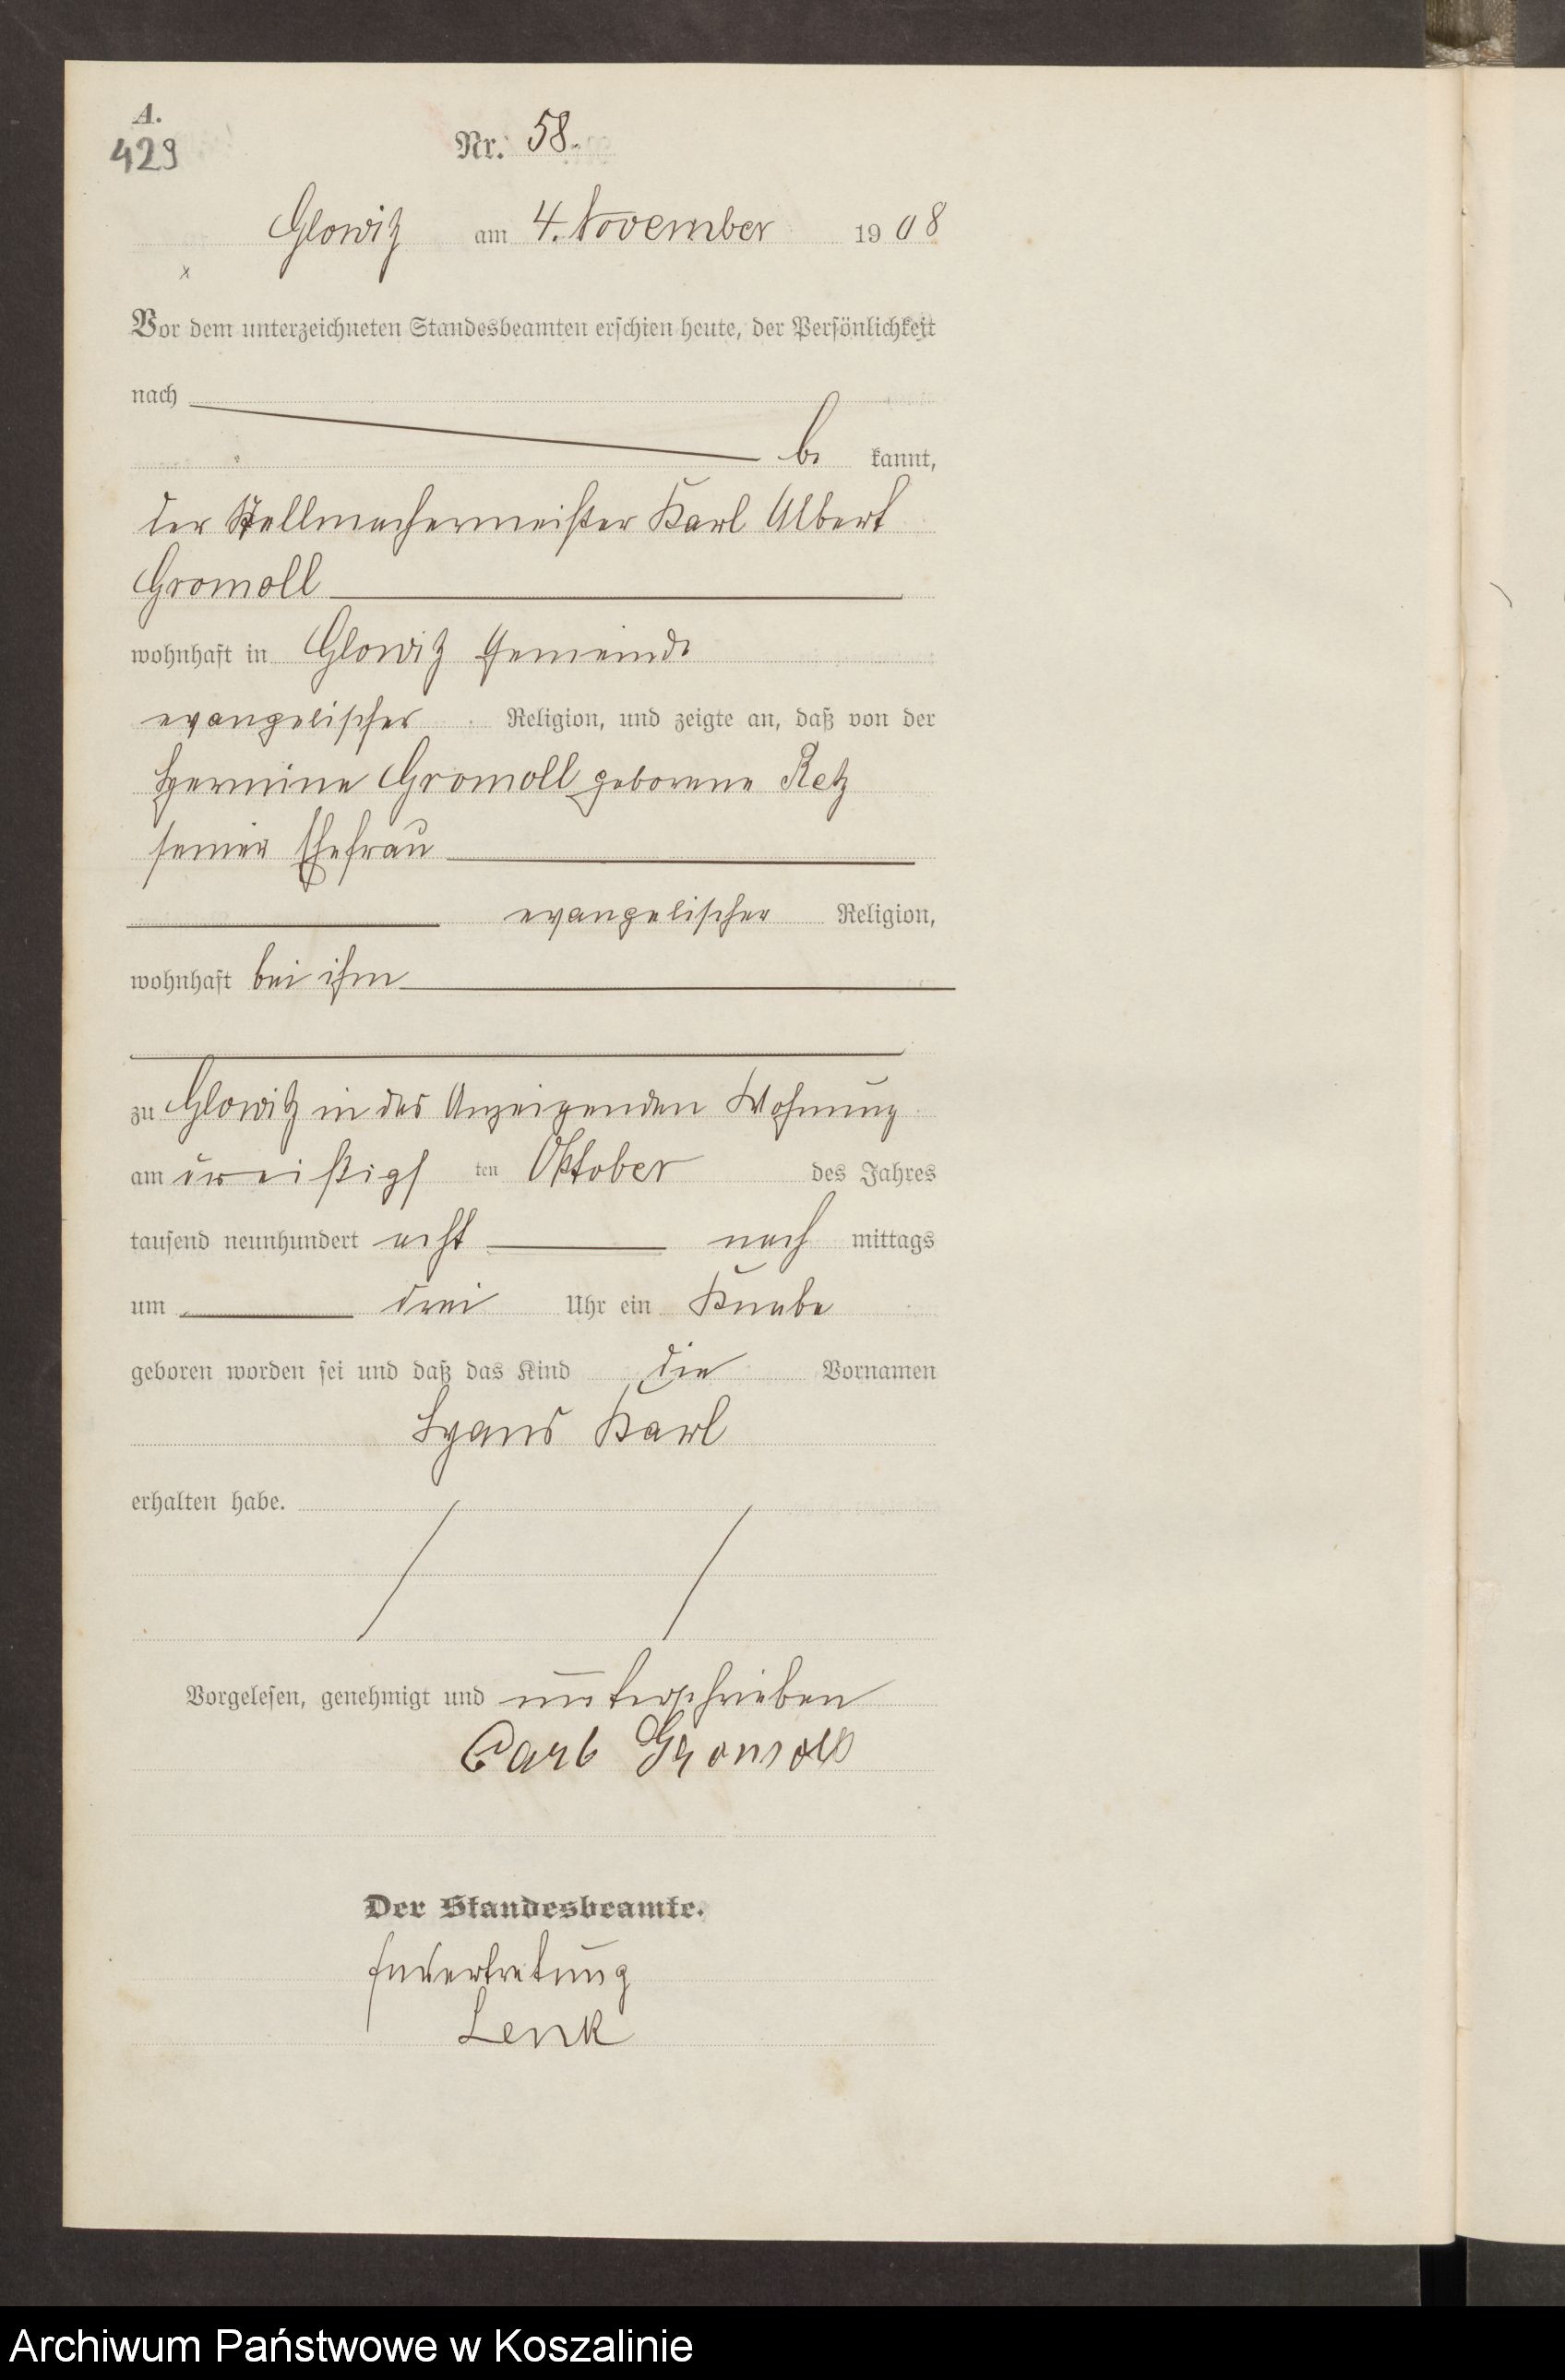 A.
429
Nr. 58.
Glowitz am 4. November 1908
x
Vor dem unterzeichneten Standesbeamten erschien heute, der Persönlichkeit
nach
be kannt,
der Stellmachermeister Karl Albert
Gromoll
wohnhaft in Glowitz Gemeinde
evangelischer Religion, und zeigte an, daß von der
Hermine Gromoll geborene Retz
seiner Ehefrau
evangelischer Religion,
wohnhaft bei ihm
zu Glowitz in des Anzeigenden Wohnung
am dreißigs ten Oktober des Jahres
tausend neunhundert acht nach mittags
um drei Uhr ein Knabe
geboren worden sei und daß das Kind die Vornamen
Hans Karl
erhalten habe.
Vorgelesen, genehmigt und unterschrieben
Carl Gromoll
Der Standesbeamte.
In Vertretung
Lenk
Archiwum Państwowe w Koszalinie